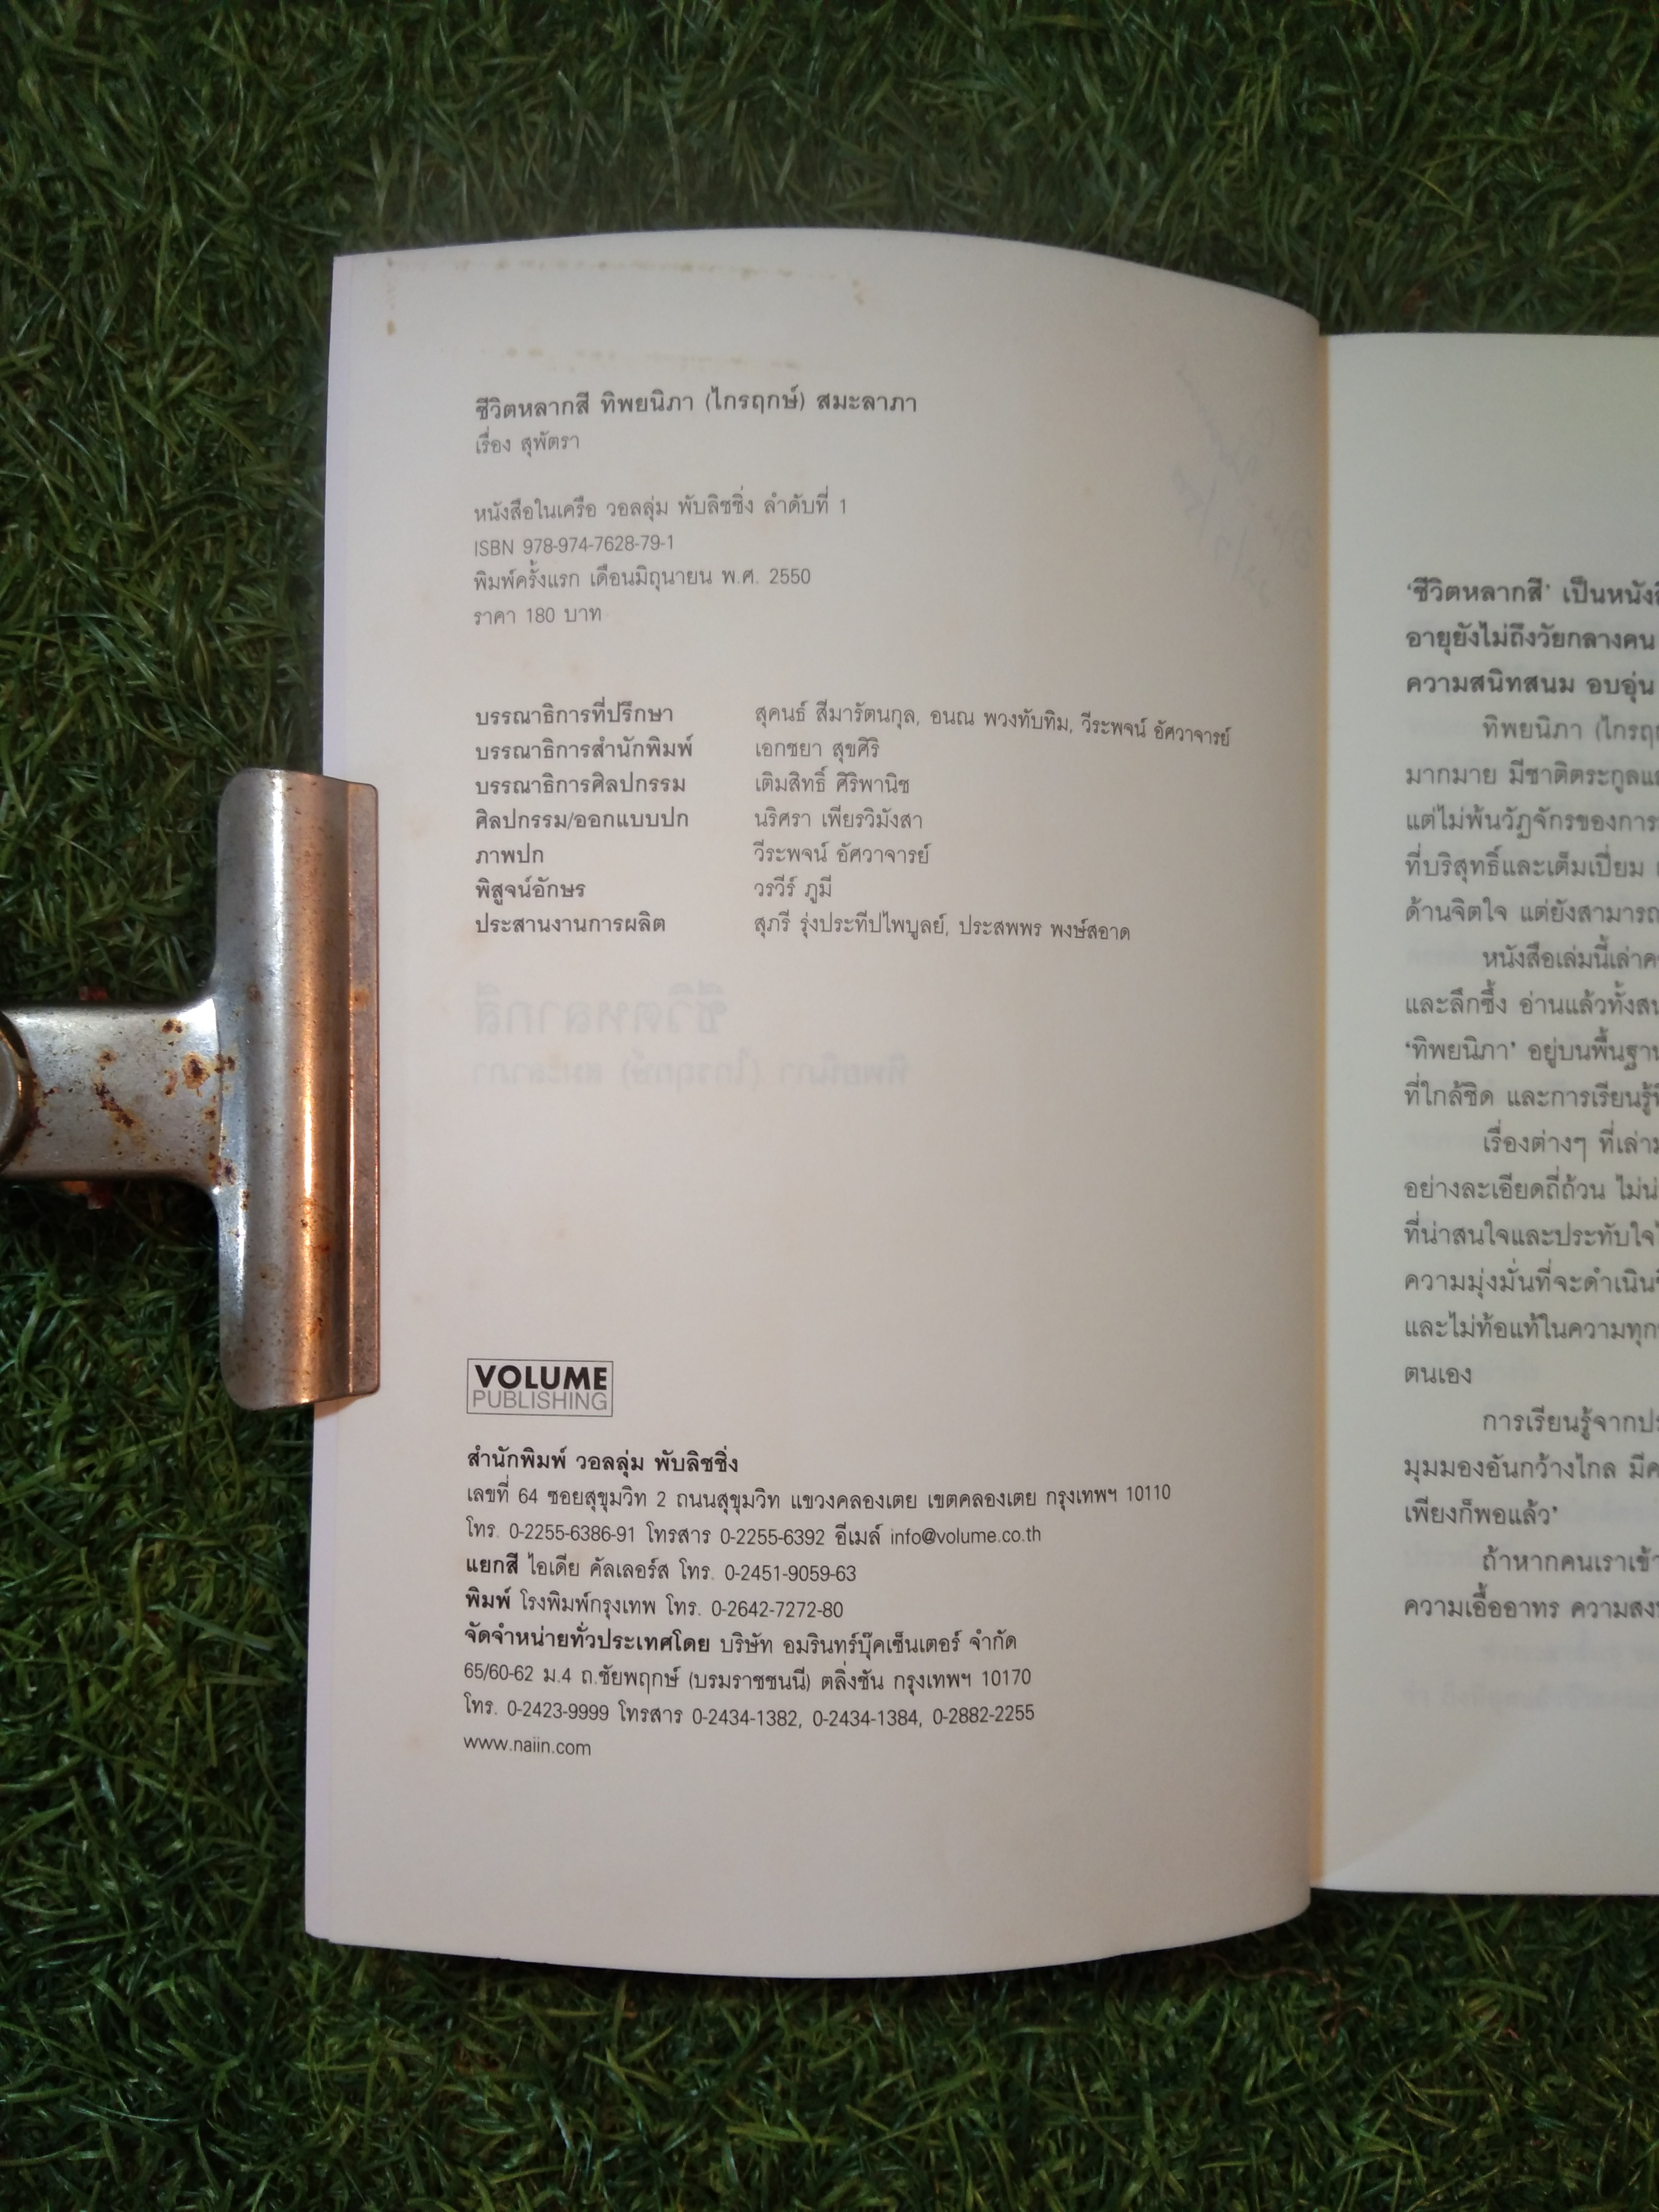 ชีวิตหลากสี ทิพยนิภา (ไกรฤกษ์) สมะลาภา
เรื่อง สุพัตรา
หนังสือในเครือ วอลลุ่ม พับลิชชิ่ง ลำดับที่ 1
ISBN 978-974-7628-79-1
พิมพ์ครั้งแรก เดือนมิถุนายน พ.ศ. 2550
ราคา 180 บาท
บรรณาธิการที่ปรึกษา สุคนธ์ สีมารัตนกุล, อนณ พวงทับทิม, วีระพจน์ อัศวาจารย์
บรรณาธิการสำนักพิมพ์ เอกชยา สุขศิริ
บรรณาธิการศิลปกรรม เติมสิทธิ์ ศิริพานิช
ศิลปกรรม/ออกแบบปก นริศรา เพียรวิมังสา
ภาพปก วีระพจน์ อัศวาจารย์
พิสูจน์อักษร วรวีร์ ภูมี
ประสานงานการผลิต สุภรี รุ่งประทีปไพบูลย์, ประสพพร พงษ์สอาด
VOLUME
PUBLISHING
สำนักพิมพ์ วอลลุ่ม พับลิชชิ่ง
เลขที่ 64 ซอยสุขุมวิท 2 ถนนสุขุมวิท แขวงคลองเตย เขตคลองเตย กรุงเทพฯ 10110
โทร. 0-2255-6386-91 โทรสาร 0-2255-6392 อีเมล์ info@volume.co.th
แยกสี ไอเดีย คัลเลอร์ส โทร. 0-2451-9059-63
พิมพ์ โรงพิมพ์กรุงเทพ โทร. 0-2642-7272-80
จัดจำหน่ายทั่วประเทศโดย บริษัท อมรินทร์บุ๊คเซ็นเตอร์ จำกัด
65/60-62 ม.4 ถ.ชัยพฤกษ์ (บรมราชชนนี) ตลิ่งชัน กรุงเทพฯ 10170
โทร. 0-2423-9999 โทรสาร 0-2434-1382, 0-2434-1384, 0-2882-2255
www.naiin.com
'ชีวิตหลากสี' เป็น
อายุยังไม่ถึงวัยกลางคน
ความสนิทสนม อบอุ่น
ทิพยนิภา
มากมาย มีชาติตระกูล
แต่ไม่พ้นวัฏจักรของการ
ที่บริสุทธิ์และเต็มเปี่ยม
ด้านจิตใจ แต่ยังสามารถ
หนังสือเล่มนี้เล่า
และลึกซึ้ง อ่านแล้ว
'ทิพยนิภา' อยู่บนพื้นฐาน
ที่ใกล้ชิด และการเรียนรู้
เรื่องต่างๆ ที่เล่า
อย่างละเอียดถี่ถ้วน
ที่น่าสนใจและประทับใจ
ความมุ่งมั่นที่จะดำเนิน
และไม่ท้อแท้ในความทุก
ตนเอง
การเรียนรู้จาก
มุมมองอันกว้างไกล
เพียงก็พอแล้ว'
ถ้าหากคนเราเข้า
ความเอื้ออาทร